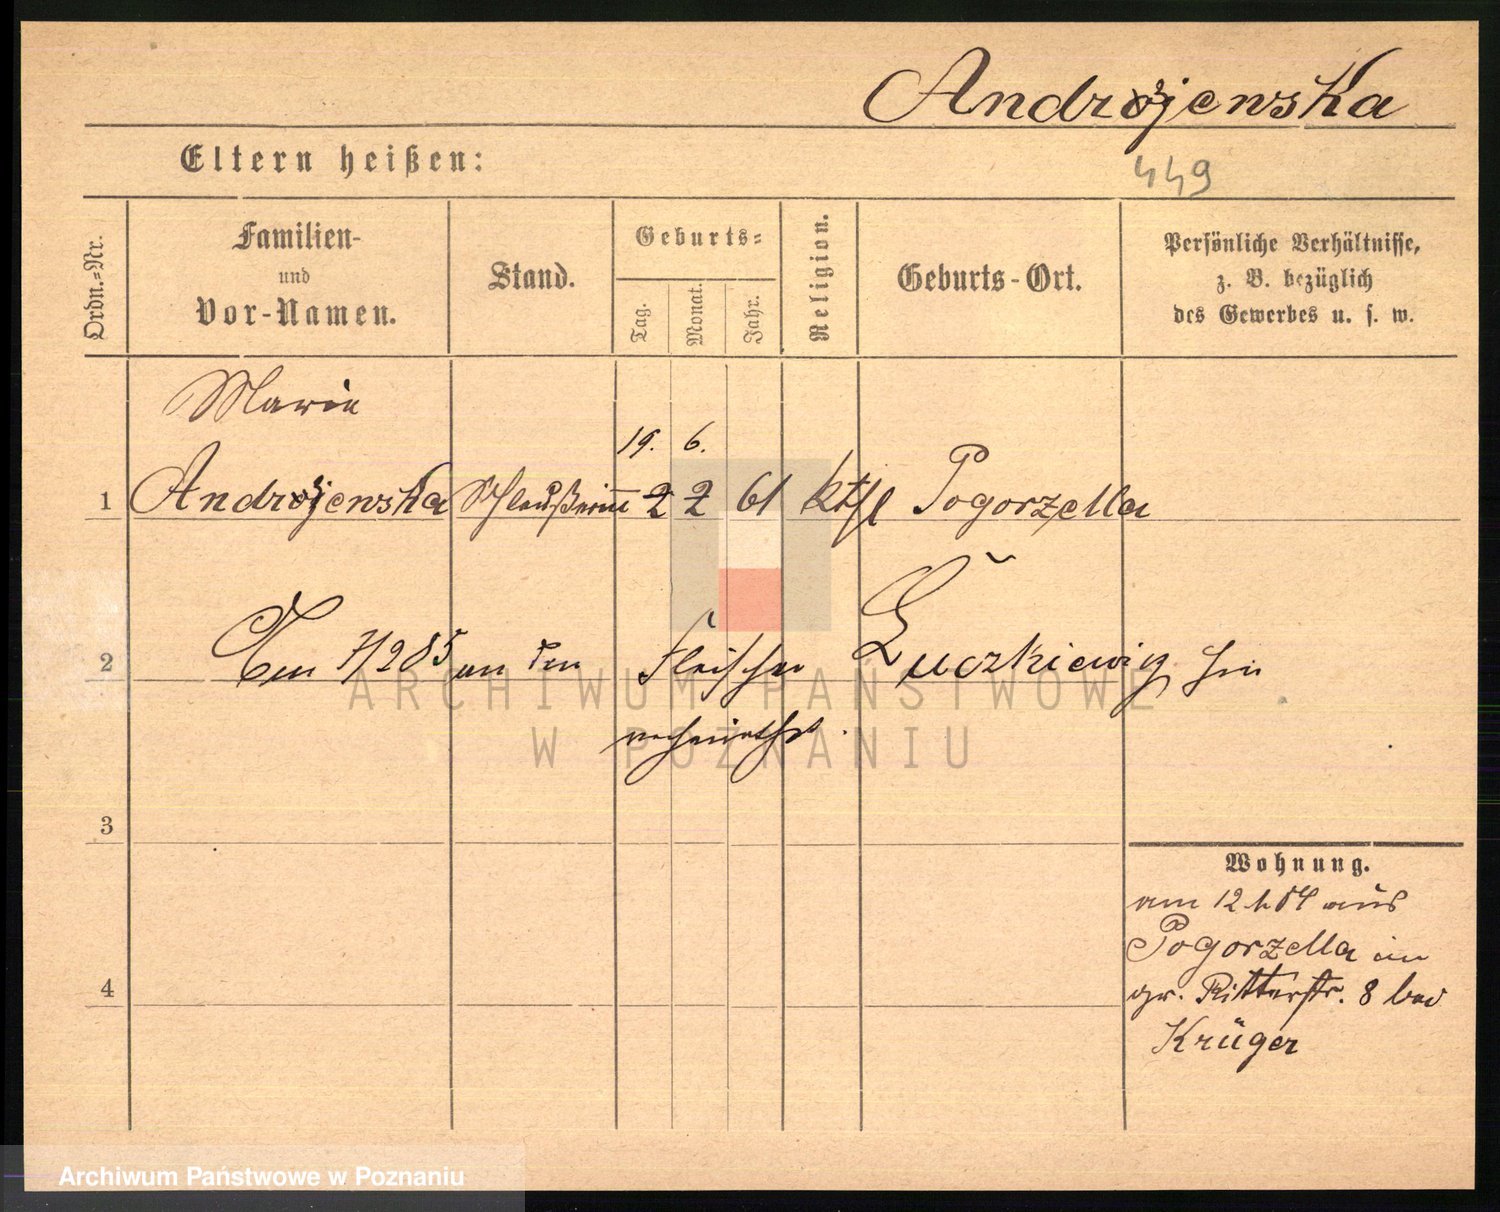 Andrzejewska
Eltern heißen:
449
Ordn.=Nr.
Familien-
und
Vor-Namen.
Stand.
Geburts=
Tag.
Monat.
Jahr.
Religion.
Geburts-Ort.
Persönliche Verhältnisse,
z. B. bezüglich
des Gewerbes u. s. w.
Marie
19. 6.
1 Andrzejewska 2 2 61 kthl Pogorzella
2 Am 7/2 85 an den Fleischer Łuczkiewicz hier
verheirathet.
ARCHIWUM PAŃSTWOWE
W POZNANIU
3
Wohnung.
am 12 84 aus
Pogorzella in
gr. Ritterstr. 8 bei
4
Krüger
Archiwum Państwowe w Poznaniu